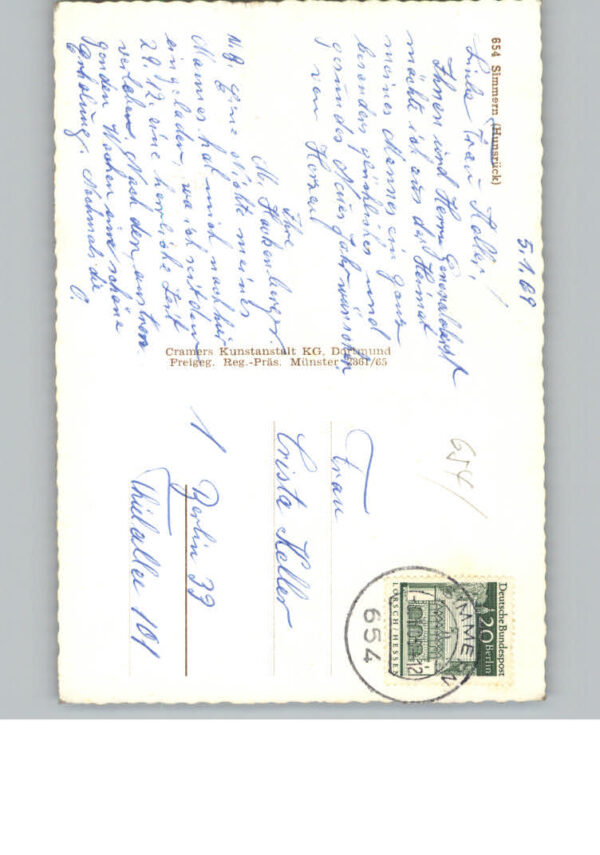 654 Simmern (Hunsrück)
5.1.69
Liebe Frau Keller!
Ihnen und Herrn
möchte ich aus der Heimat
meines Mannes ein ganz
besonders gesundes und
Neues Jahr wünschen
von Herzen
Ihre
M.
N.B. Eine Nichte meines
Mannes hat mich nach hier
eingeladen, wo ich seit dem
29.12. eine herrliche Zeit
verlebe. Nach den
Wochen eine schöne
Erholung. Nochmals die
O.
Cramers Kunstanstalt KG, Dortmund
Freigeg. Reg.-Präs. Münster 4361/65
654/
Frau
Crista Keller
1 Berlin 39
101
Deutsche Bundespost
20 Berlin
LORSCH/HESSEN
SIMMERN
654